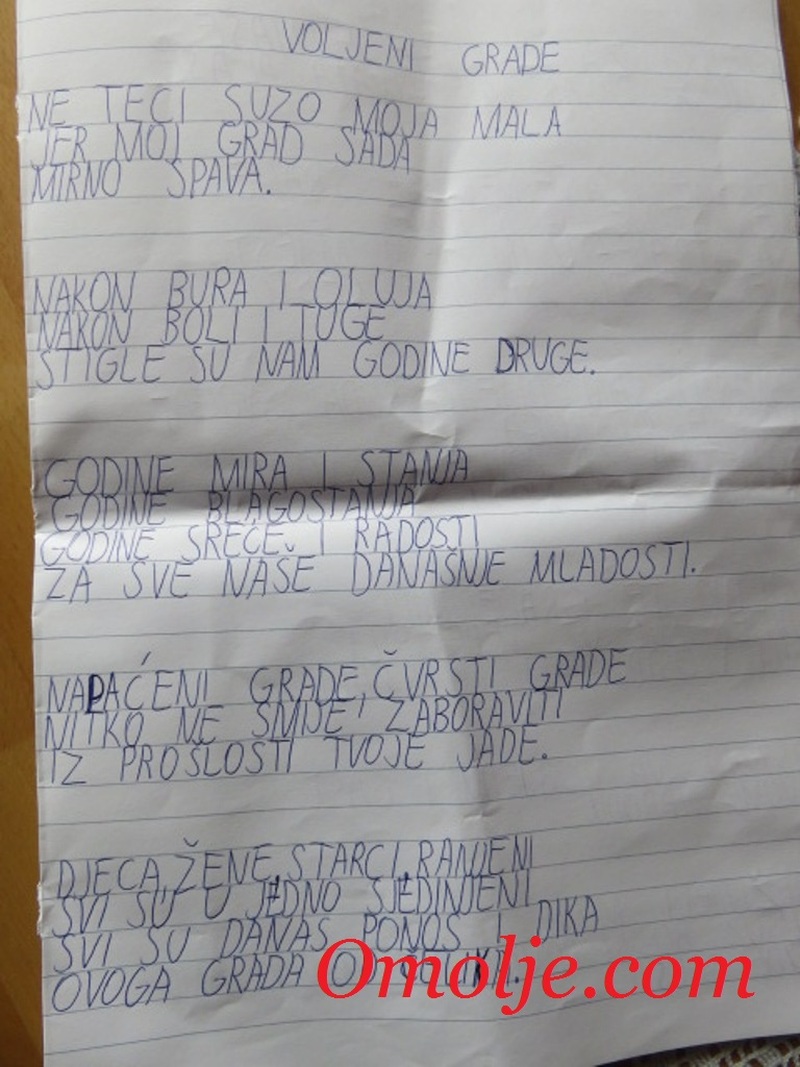 VOLJENI GRADE
NE TECI SUZO MOJA MALA
JER MOJ GRAD SADA
MIRNO SPAVA.
NAKON BURA I OLUJA
NAKON BOLI I TUGE
STIGLE SU NAM GODINE DRUGE.
GODINE MIRA I STANJA
GODINE BLAGOSTANJA
GODINE SREĆE I RADOSTI
ZA SVE NAŠE DANAŠNJE MLADOSTI.
NAPAĆENI GRADE, ČVRSTI GRADE
NITKO NE SMIJE ZABORAVITI
IZ PROŠLOSTI TVOJE JADE.
DJECA, ŽENE, STARCI, RANJENI
SVI SU U JEDNO SJEDINJENI
SVI SU DANAS PONOS I DIKA
OVOGA GRADA OD
Omolje.com